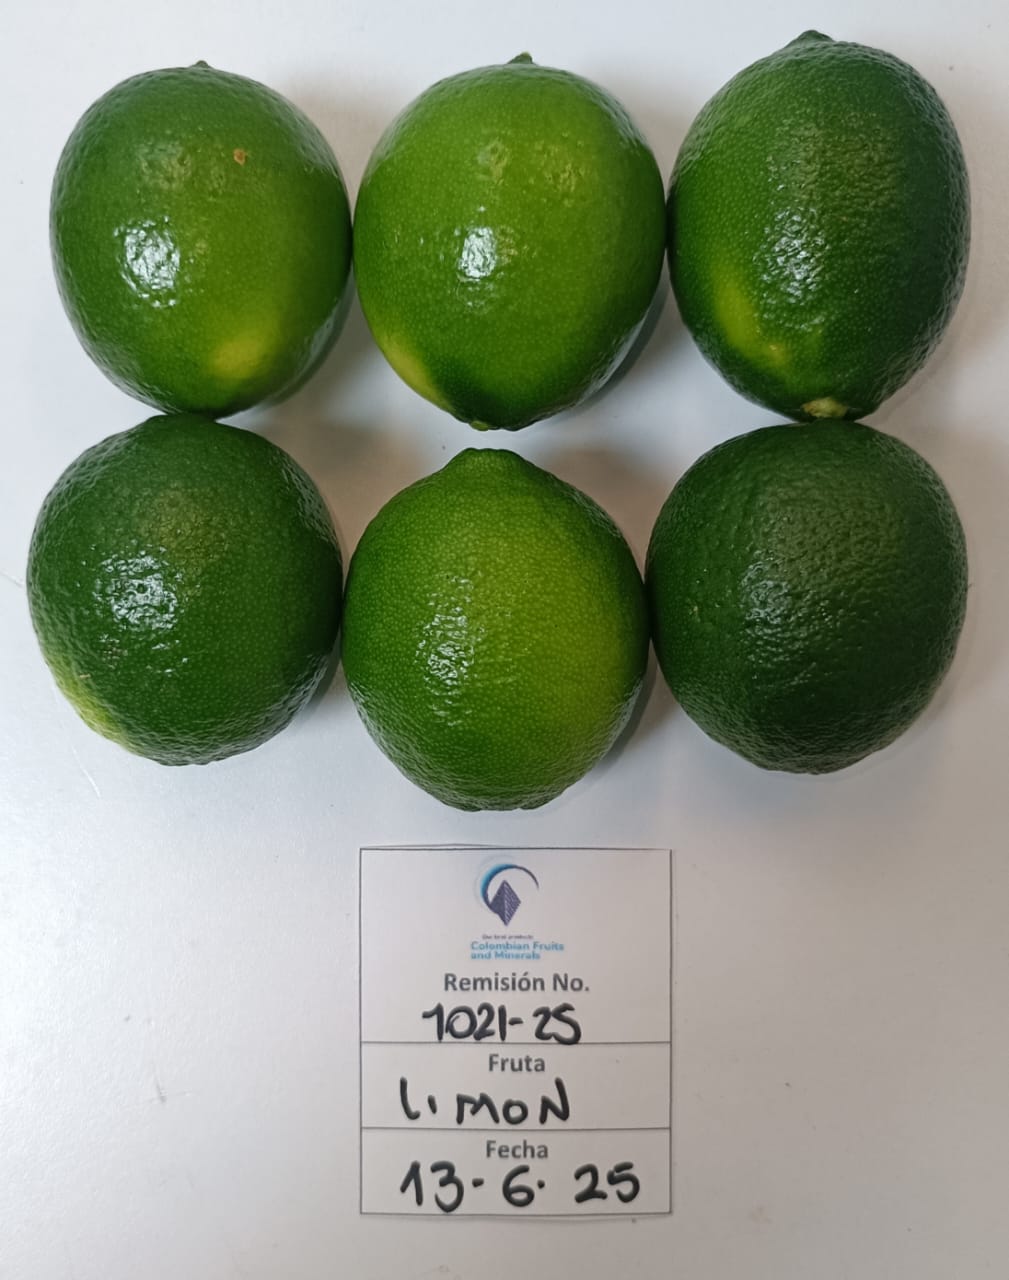 Our best products
Colombian Fruits
and Minerals
Remisión No.
1021-25
Fruta
LiMoN
Fecha
13-6-25